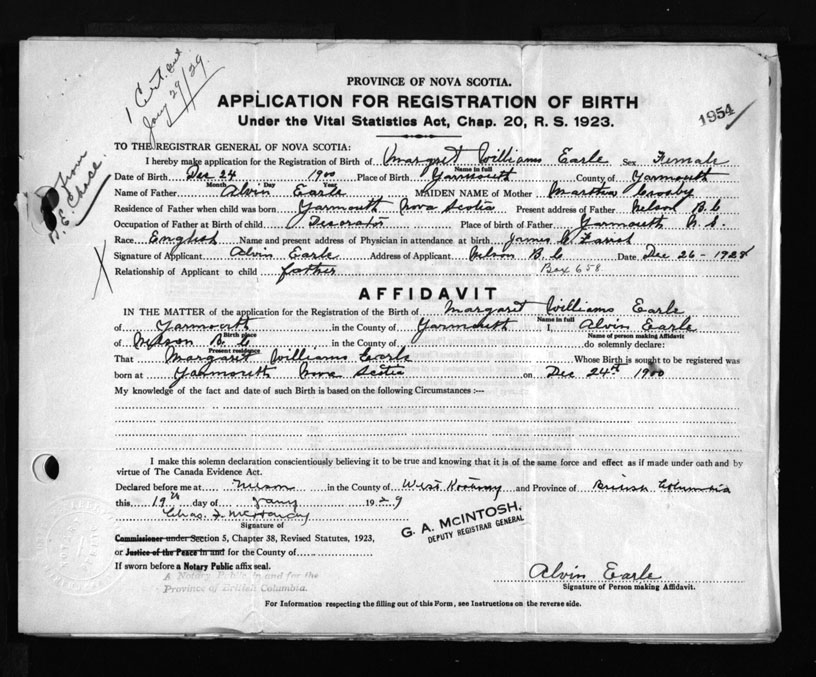 1 Cert. out
Jany 29/29
PROVINCE OF NOVA SCOTIA.
APPLICATION FOR REGISTRATION OF BIRTH
Under the Vital Statistics Act, Chap. 20, R. S. 1923.
1954
from
E. Chase
TO THE REGISTRAR GENERAL OF NOVA SCOTIA:
I hereby make application for the Registration of Birth of Margaret Williams Earle Sex Female
Name in full
Date of Birth Dec 24 1900 Place of Birth Yarmouth County of Yarmouth
Month Day Year
Name of Father Alvin Earle MAIDEN NAME of Mother Martha Crosby
Residence of Father when child was born Yarmouth Nova Scotia Present address of Father Nelson B.C
Occupation of Father at Birth of child Decorator Place of birth of Father Yarmouth N.S.
Race English Name and present address of Physician in attendance at birth James
Signature of Applicant Alvin Earle Address of Applicant Nelson B.C Date Dec 26 - 1928
Box 658
Relationship of Applicant to child father
AFFIDAVIT
IN THE MATTER of the application for the Registration of the Birth of Margaret Williams Earle
Name in full
of Yarmouth in the County of Yarmouth I, Alvin Earle
Birth place
Name of person making Affidavit
of Nelson B.C in the County of do solemnly declare:
Present residence
That Margaret Williams Earle Whose Birth is sought to be registered was
born at Yarmouth Nova Scotia on Dec 24th 1900
My knowledge of the fact and date of such Birth is based on the following Circumstances :—
I make this solemn declaration conscientiously believing it to be true and knowing that it is of the same force and effect as if made under oath and by
virtue of The Canada Evidence Act.
Declared before me at Nelson in the County of West Kootenay and Province of British Columbia
this 19th day of Jany 1929
Chas. F. McHardy
Signature of
G. A. McINTOSH,
DEPUTY REGISTRAR GENERAL
Commissioner under Section 5, Chapter 38, Revised Statutes, 1923,
or Justice of the Peace in and for the County of
If sworn before a Notary Public affix seal.
A Notary Public in and for the
Province of British Columbia.
Alvin Earle
Signature of Person making Affidavit.
For Information respecting the filling out of this Form, see Instructions on the reverse side.